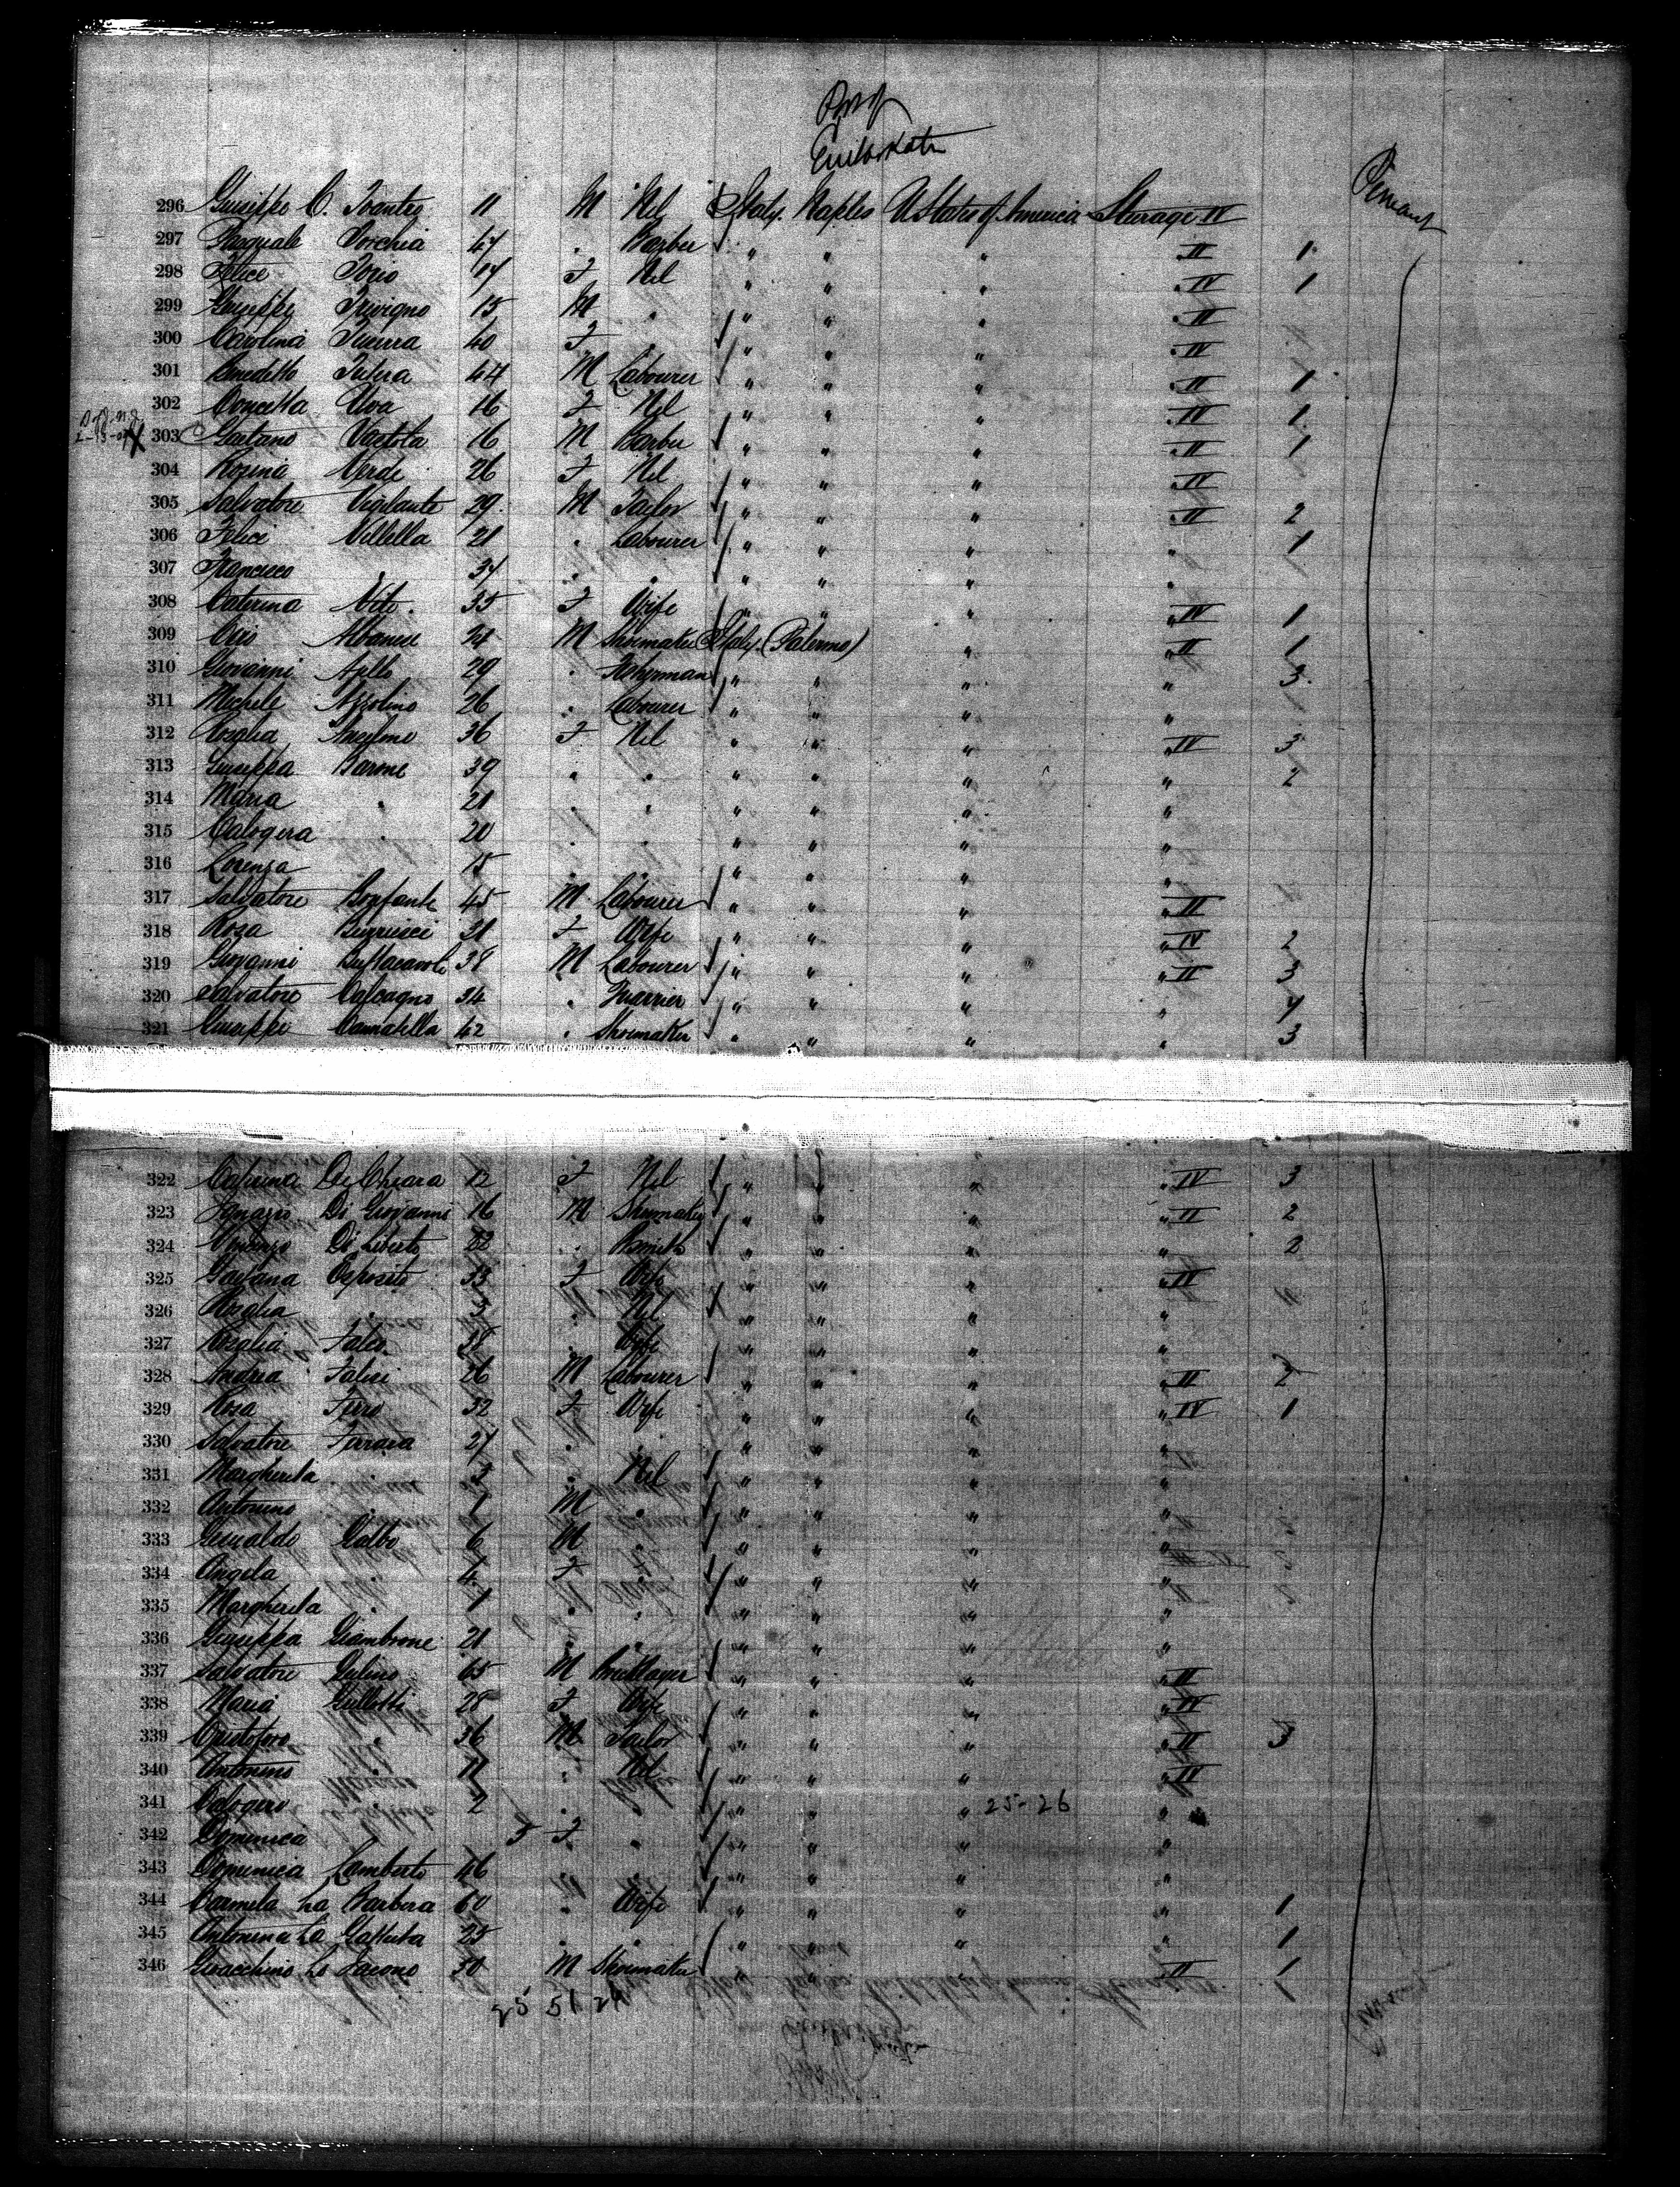 Port
Embarkation
Permanent
296 Giuseppe C. 11 M Nil Italy Naples U States of America Steerage IV
297 Pasquale Torchia 47 " Barber " " " " II 1
298 Felice 17 F Nil " " " " IV 1
299 Giuseppe Trivigno 15 M " " " " " II
300 Carolina 40 F " " " " " IV
301 Benedetto Tutera 44 M Labourer " " " " II 1
302 Concetta Uva 16 F Nil " " " " IV 1
303 Gaetano Vactola 16 M Barber " " " " II 1
304 Rosina Verde 26 F Nil " " " " IV
305 Salvatore Vigilante 29 M Tailor " " " " II 2
306 Felice Villella 21 " Labourer " " " " 1
307 Francesco " 37 " " " " " "
308 Caterina Vito 35 F Wife " " " " IV 1
309 Albanese M Shoemaker Italy (Palermo) " " II 1
310 Giovanni Aello 29 " Fisherman " " " " 3
311 Michele Azzolino 26 " Labourer " " " "
312 Rosalia Anselmo 36 F Nil " " " " IV 3
313 Giuseppa Barone 39 " " " " " " 2
314 Maria " 21 " " " " " "
315 Calogera " 20 " " " " " "
316 Lorenza 15 " " " " " "
317 Salvatore Bonfante 45 M Labourer " " " " II
318 Rosa 31 F Wife " " " " IV 2
319 Giovanni 38 M Labourer " " " " II 3
320 Salvatore Calcagno 34 " " " " " 4
321 Giuseppe 42 " Shoemaker " " " " 3
322 Caterina Di Chiara 12 F Nil " " " " IV 3
323 Ignazio Di Giovanni 16 M Shoemaker " " " " II 2
324 Vincenzo Di Liberto 22 " Bsmith " " " " 2
325 Gaetana Esposito 33 F Wife " " " " IV
326 Rosalia " 3 " Nil " " " "
327 Rosalia Falco 28 " Wife " " " "
328 Andrea Falisi 26 M Labourer " " " " II 2
329 Rosa Ferro 32 F Wife " " " " IV 1
330 Salvatore Ferrara 27 " " " " " "
331 Margherita " 3 " Nil " " " "
332 Antonino " 1 M " " " " "
333 Gesualdo Galbo 6 M " " " " "
334 Angela " 4 F " " " " "
335 Margherita " 1 " " " " " "
336 Giuseppa Giambrone 21 " " " " " "
337 Salvatore Gulino 65 M Bricklayer " " " " II
338 Maria Gullotti 28 F Wife " " " " IV
339 Cristoforo " 36 M Tailor " " " " II 3
340 Antonino " 11 " Nil " " " " IV
341 Calogero 2 " " " " " 25-26 "
342 Domenica 3 F " " " " "
343 Domenica Lamberto 46 " " " " " "
344 Carmela La Barbera 60 " Wife " " " " 1
345 Antonina La Gattuta 25 " " " " " " 1
346 Gioacchino Lo Iacono 30 M Shoemaker " " " " II 1
25 51 24